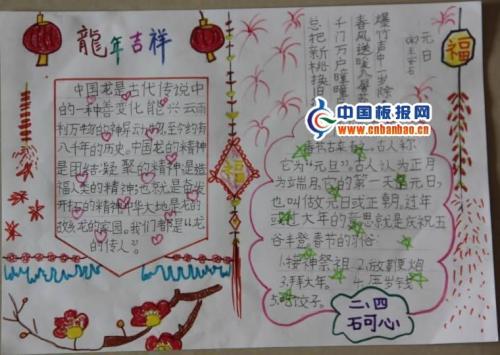 龍年吉祥
中国龙是古代传说中
的一种善变化能兴云雨
利万物的神异动物,至今约有
八千年的历史。中国龙的精神
是团结凝聚的精神是造
福人类的精神;也就是奋发
开拓的精神。中华大地是龙的
故乡龙的家园。我们都是“龙
的传人”。
福
元日
爆竹声中一岁除
春风送暖入屠苏
千门万户曈曈
总把新桃换旧
福
中国板报网
www.cnbanbao.cn
春节古来有之。古人称
它为“元旦”。古人认为正月
为端月,它的第一天是元日,
也叫做元日或正朝,过年
或过大年的意思就是庆祝五
谷丰登春节的习俗
1.接神祭祖 2.放鞭炮
3.拜大年。 4.压岁钱
5.吃饺子。
二、四
石可心